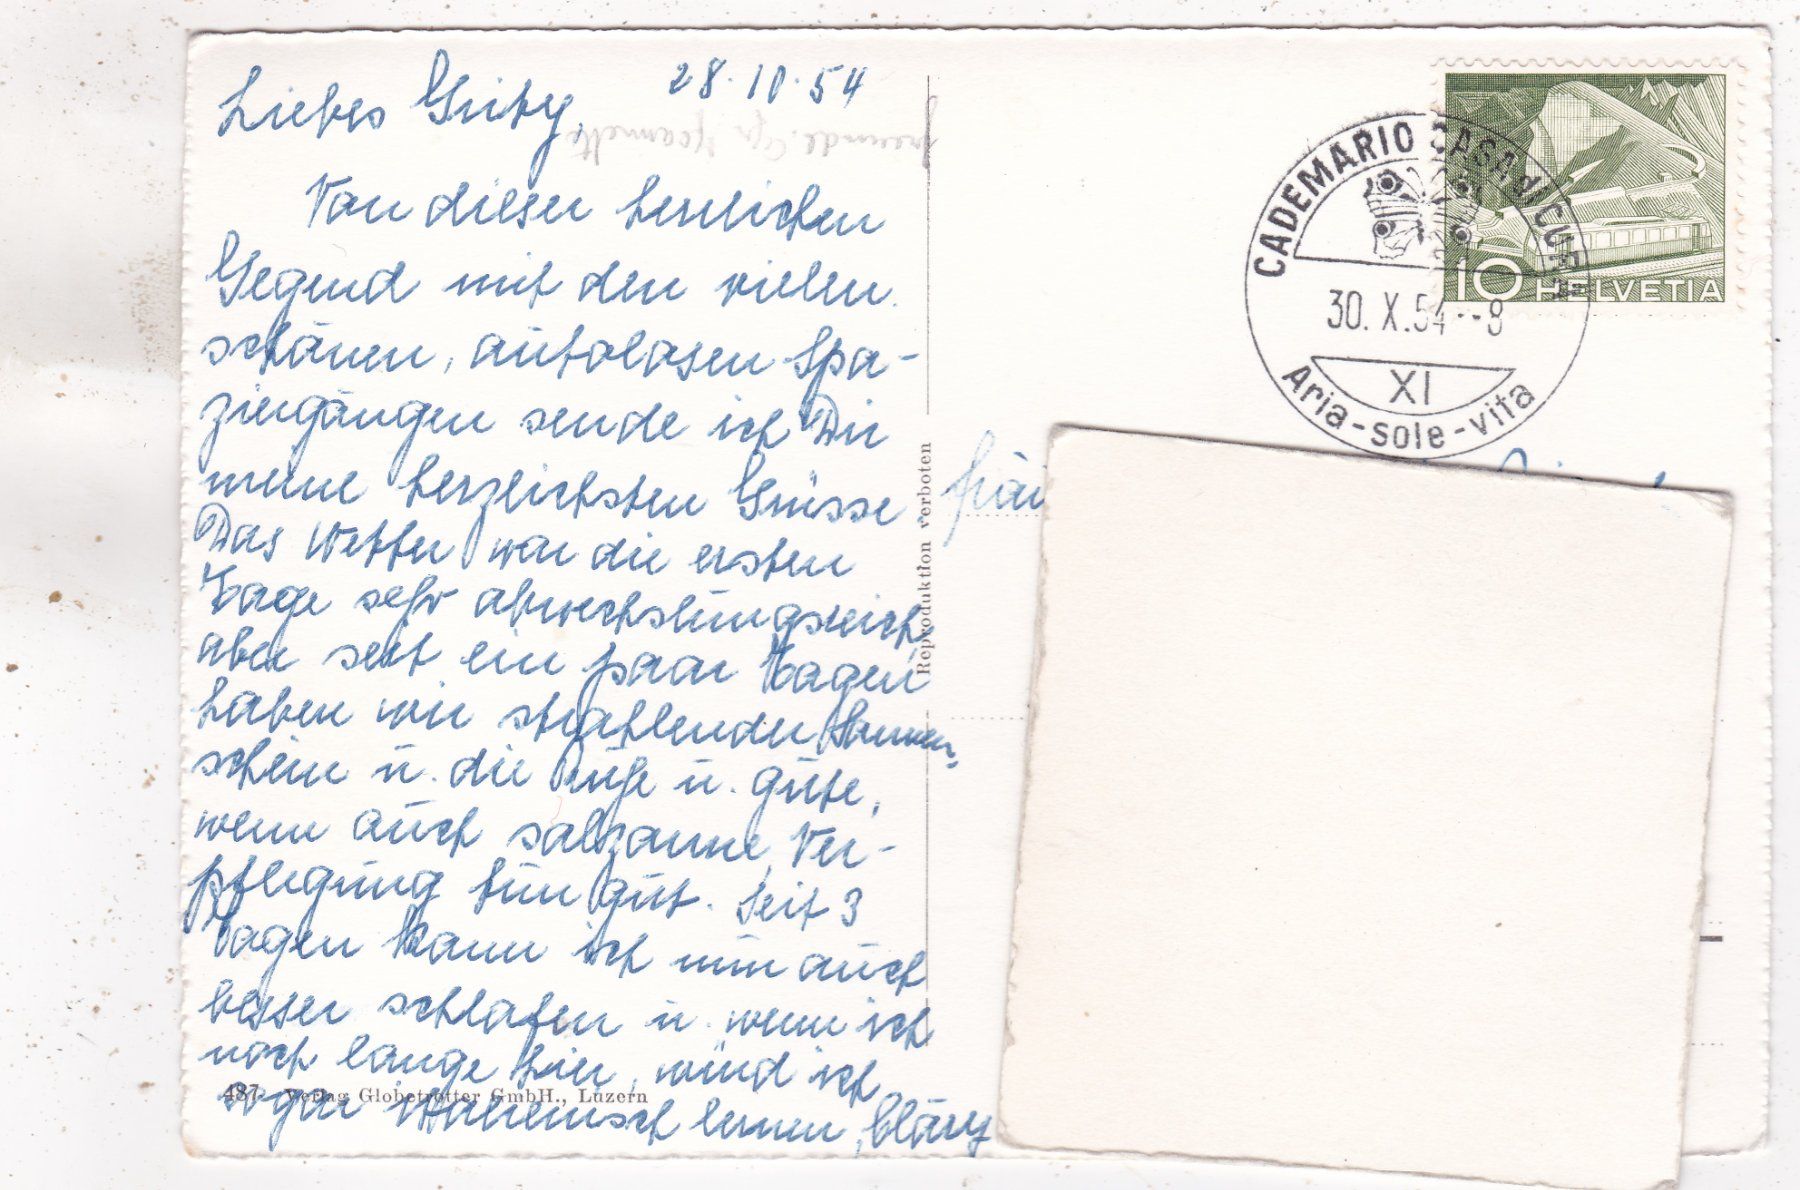 28.10.54
Liebes Grity,
Von dieser herrlichen
Gegend mit den vielen
schönen, autolosen Spa-
ziergängen sende ich Dir
meine herzlichsten Grüsse
Das Wetter war die ersten
Tage sehr abwechslungsreich,
aber seit ein paar Tagen
haben wir strahlender Sonnen-
schein u. die Ruhe u. gute,
wenn auch salzarme, Ver-
pflegung tun gut. Seit 3
Tagen kann ich nun auch
besser schlafen u. wenn ich
noch lange hier, würd ich
sogar italienisch lernen,
487 Verlag Globetrotter GmbH., Luzern
Reproduktion verboten
CADEMARIO CASA di CURA
30.X.54--8
XI
Aria-sole-vita
10 HELVETIA